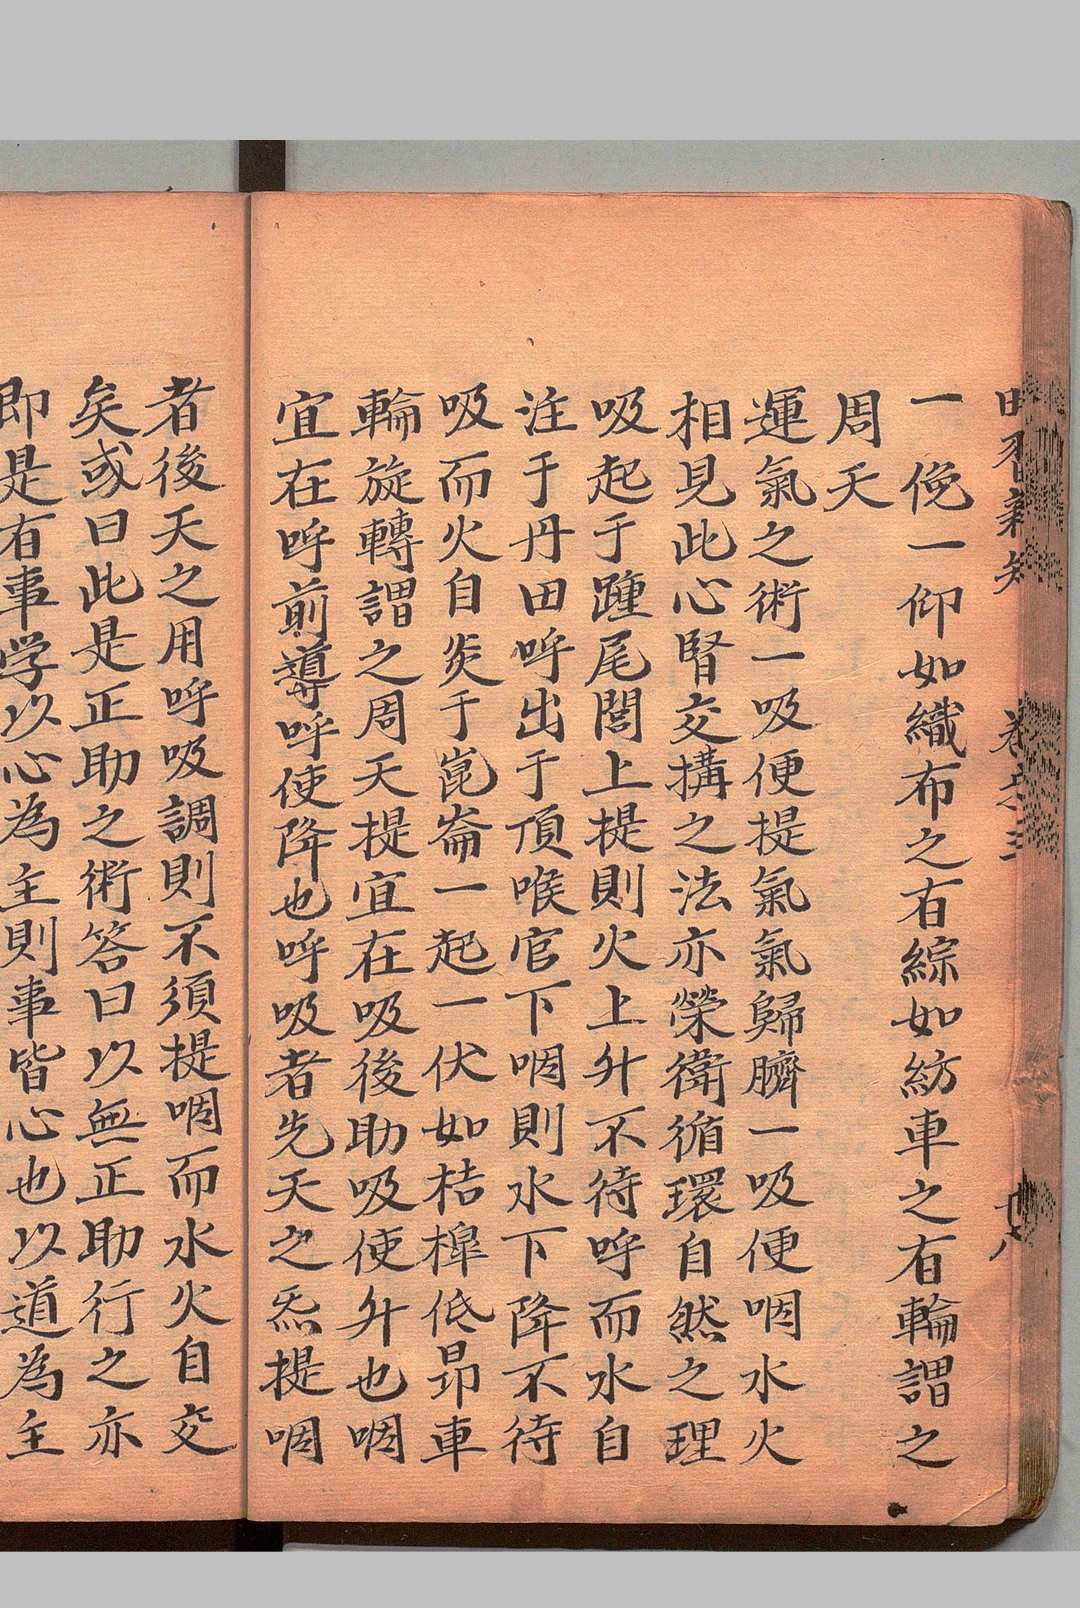 時習新知　卷之三　廿八
一俛一仰如織布之有綜如紡車之有輪謂之
周天
運氣之術一吸便提氣氣歸臍一吸便咽水火
相見此心腎交搆之法亦榮衛循環自然之理
吸起于踵尾閭上提則火上升不待呼而水自
注于丹田呼出于頂喉官下咽則水下降不待
吸而火自炎于崑崙一起一伏如桔橰低昂車
輪旋轉謂之周天提宜在吸後助吸使升也咽
宜在呼前導呼使降也呼吸者先天之炁提咽
者後天之用呼吸調則不須提咽而水火自交
矣或曰此是正助之術答曰以無正助行之亦
即是有事学以心為主則事皆心也以道為主